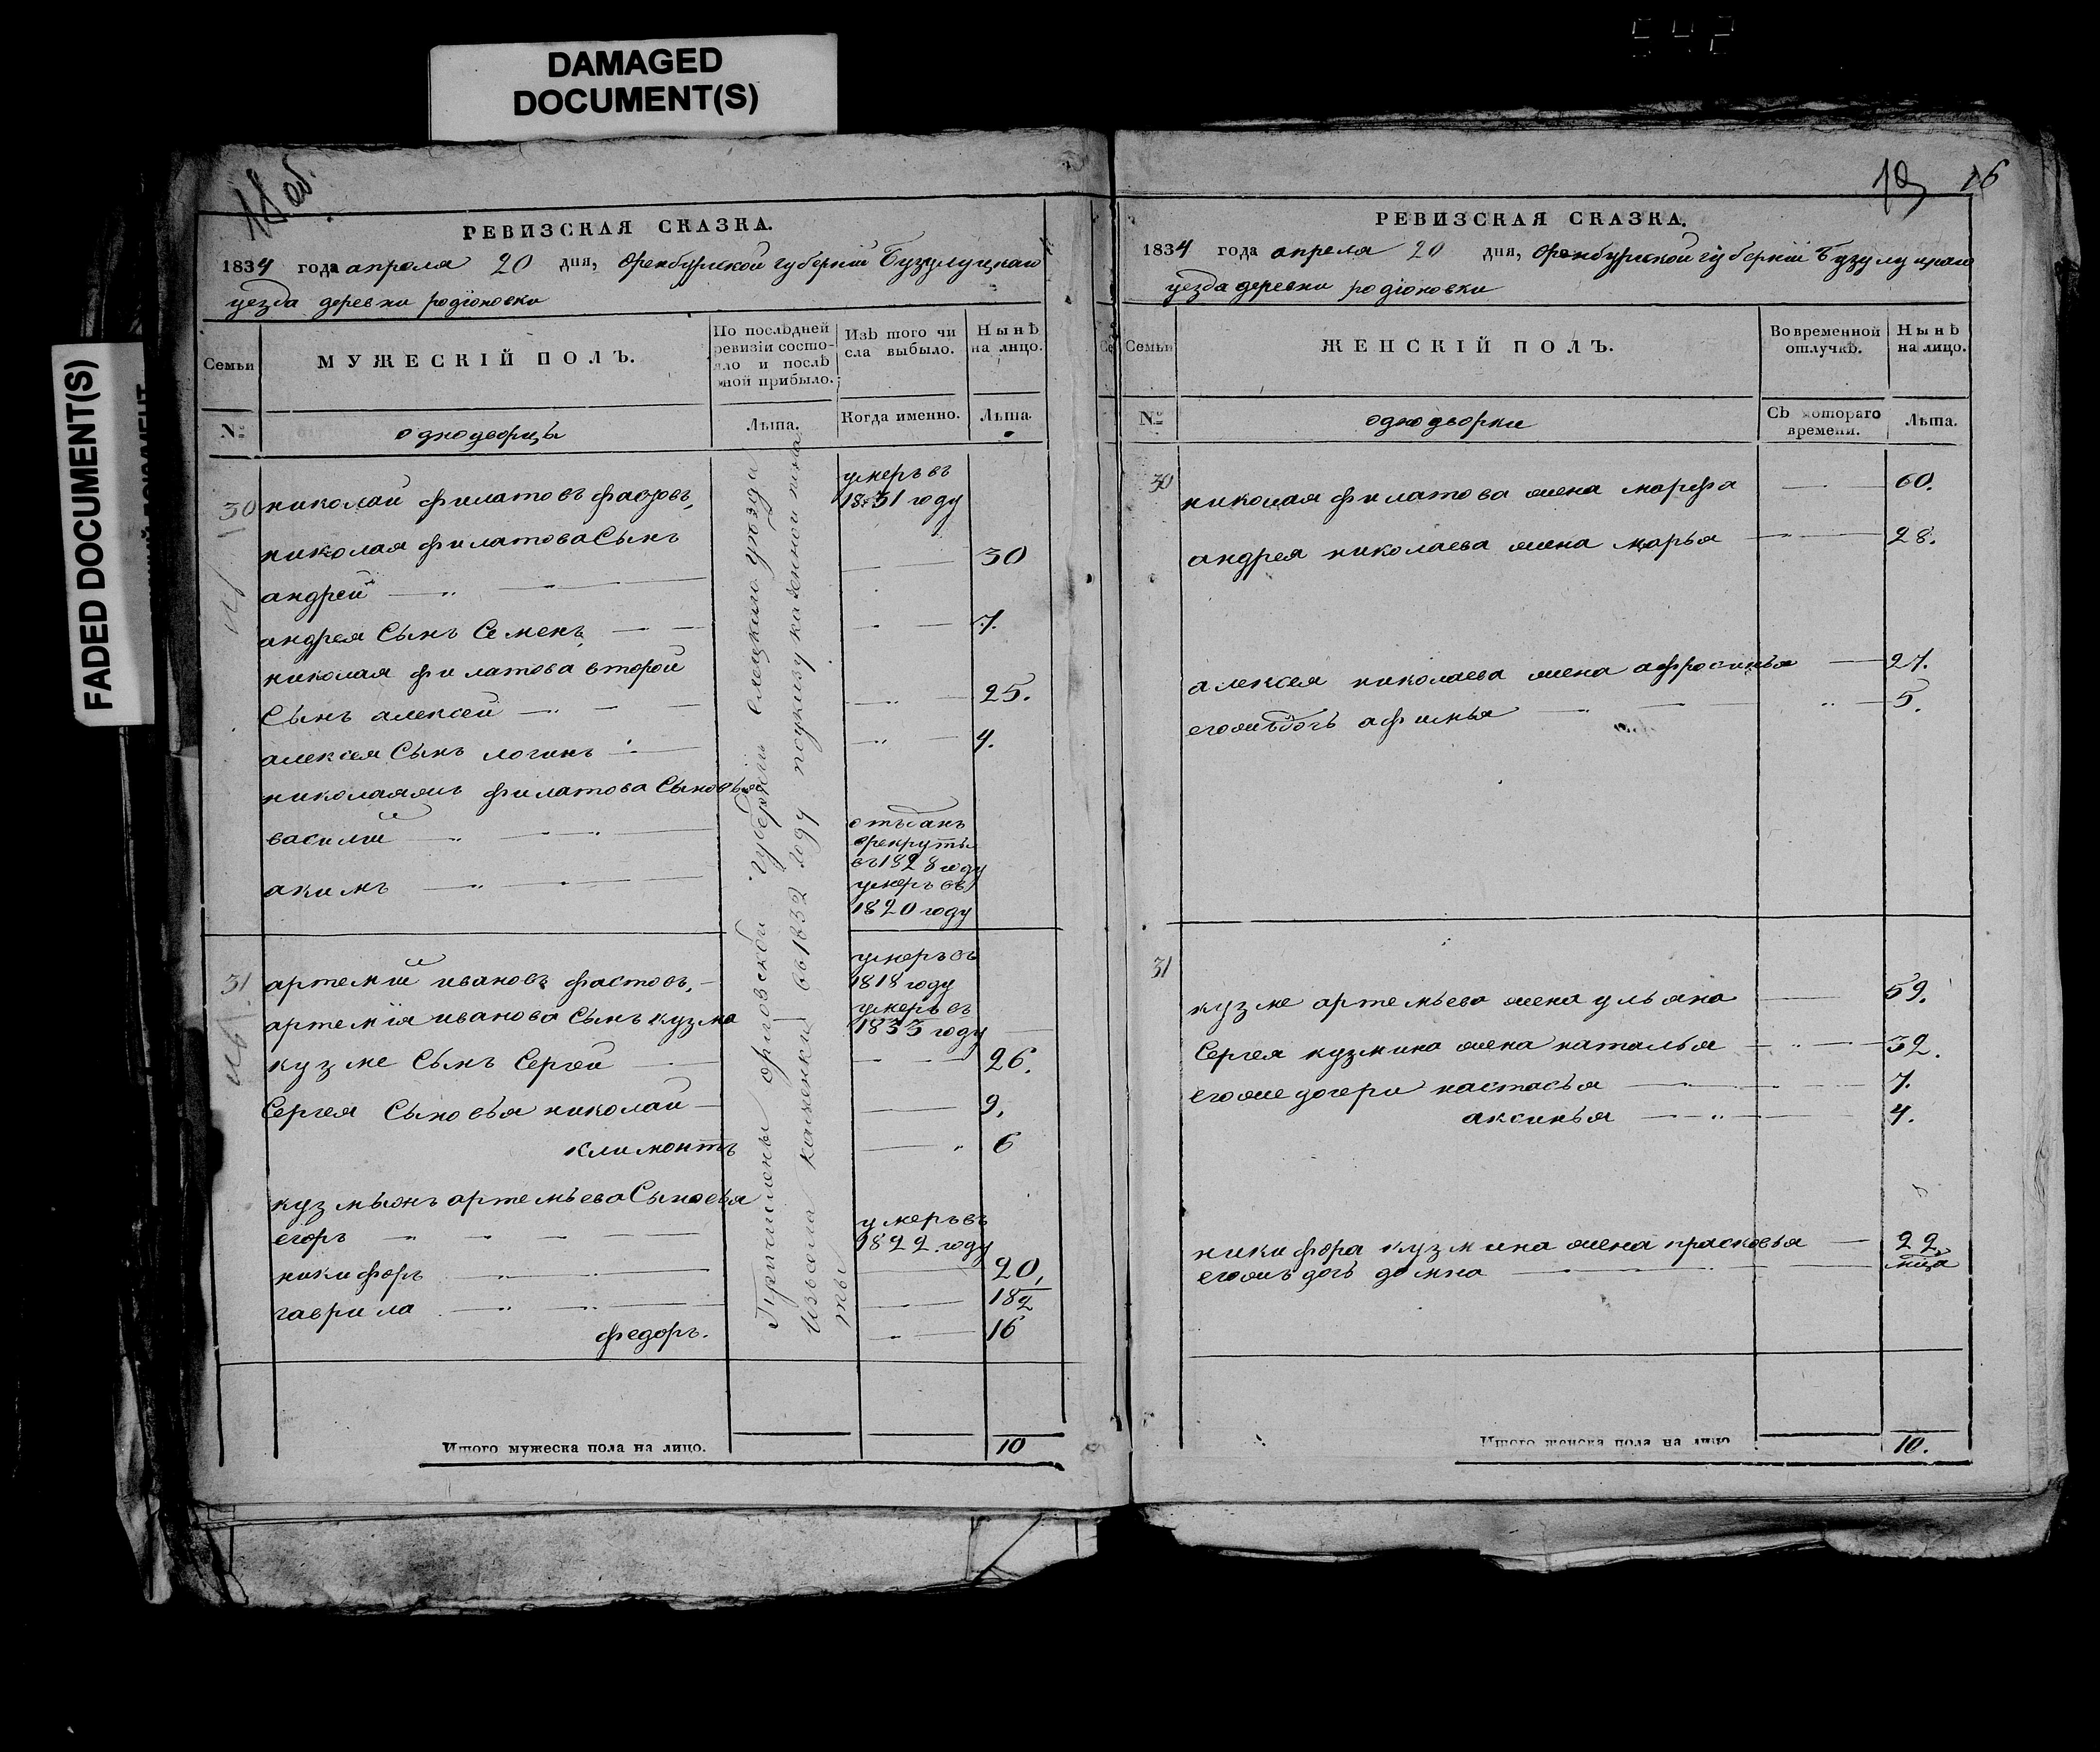 DAMAGED
DOCUMENT(S)
FADED DOCUMENT(S)
542
11 об.
РЕВИЗСКАЯ СКАЗКА.
1834 года апреля 20 дня, Оренбургской губерніи Бузулуцкаго
уезда деревни родіоновки
Семьи
МУЖЕСКІЙ ПОЛЪ.
По послѣдней
ревизіи состо-
яло и послѣ
оной прибыло.
Изъ того чи
сла выбыло.
Нынѣ
на лицо.
№
однодворцы
Лѣта.
Когда именно.
Лѣта.
30 николай филатовъ
умеръ въ
1831 году
николая филатова Сынъ
андрей 30
андрея Сынъ Семенъ 7.
николая филатова второй
Сынъ алексей 25.
алексея Сынъ логинъ 4.
николаяжъ филатова Сыновья
василий
отъданъ
врекруты
въ 1828 году
акимъ
умеръ въ
1820 году
31 артемий ивановъ фастовъ,
умеръ въ
1818 году
артемія иванова Сынъ кузма
умеръ въ
1833 году
кузме Сынъ Сергей 26.
Сергея Сыновья николай 9.
климонтъ 6
кузмы артемьева Сыновья
егоръ
умеръ въ
1822 году
никифоръ 20,
гаврила 18½
федоръ. 16
Причислены орловской губерніи елецкаго уѣзда
изъ села каменки въ 1832 году поуказу казенной пала
ты
Итого мужеска пола на лицо. 10
16
РЕВИЗСКАЯ СКАЗКА.
1834 года апреля 20 дня, Оренбургской губерніи Бузулуцкаго
уезда деревни родіоновки
Семьи
ЖЕНСКІЙ ПОЛЪ.
Во временной
отлучкѣ.
Нынѣ
на лицо.
№
однодворки
Съ котораго
времени.
Лѣта.
30 николая филатова жена марфа 60.
андрея николаева жена марья 28.
алексея николаева жена афросинья 27.
егожъ дочь афимья 5.
31
кузме артемьева жена ульяна 59.
Сергея кузмина жена наталья 32.
егоже дочери настасья 7.
аксинья 4.
никифора кузмина жена прасковья 22
егожъ дочь домна
Итого женска пола на лицо 10.